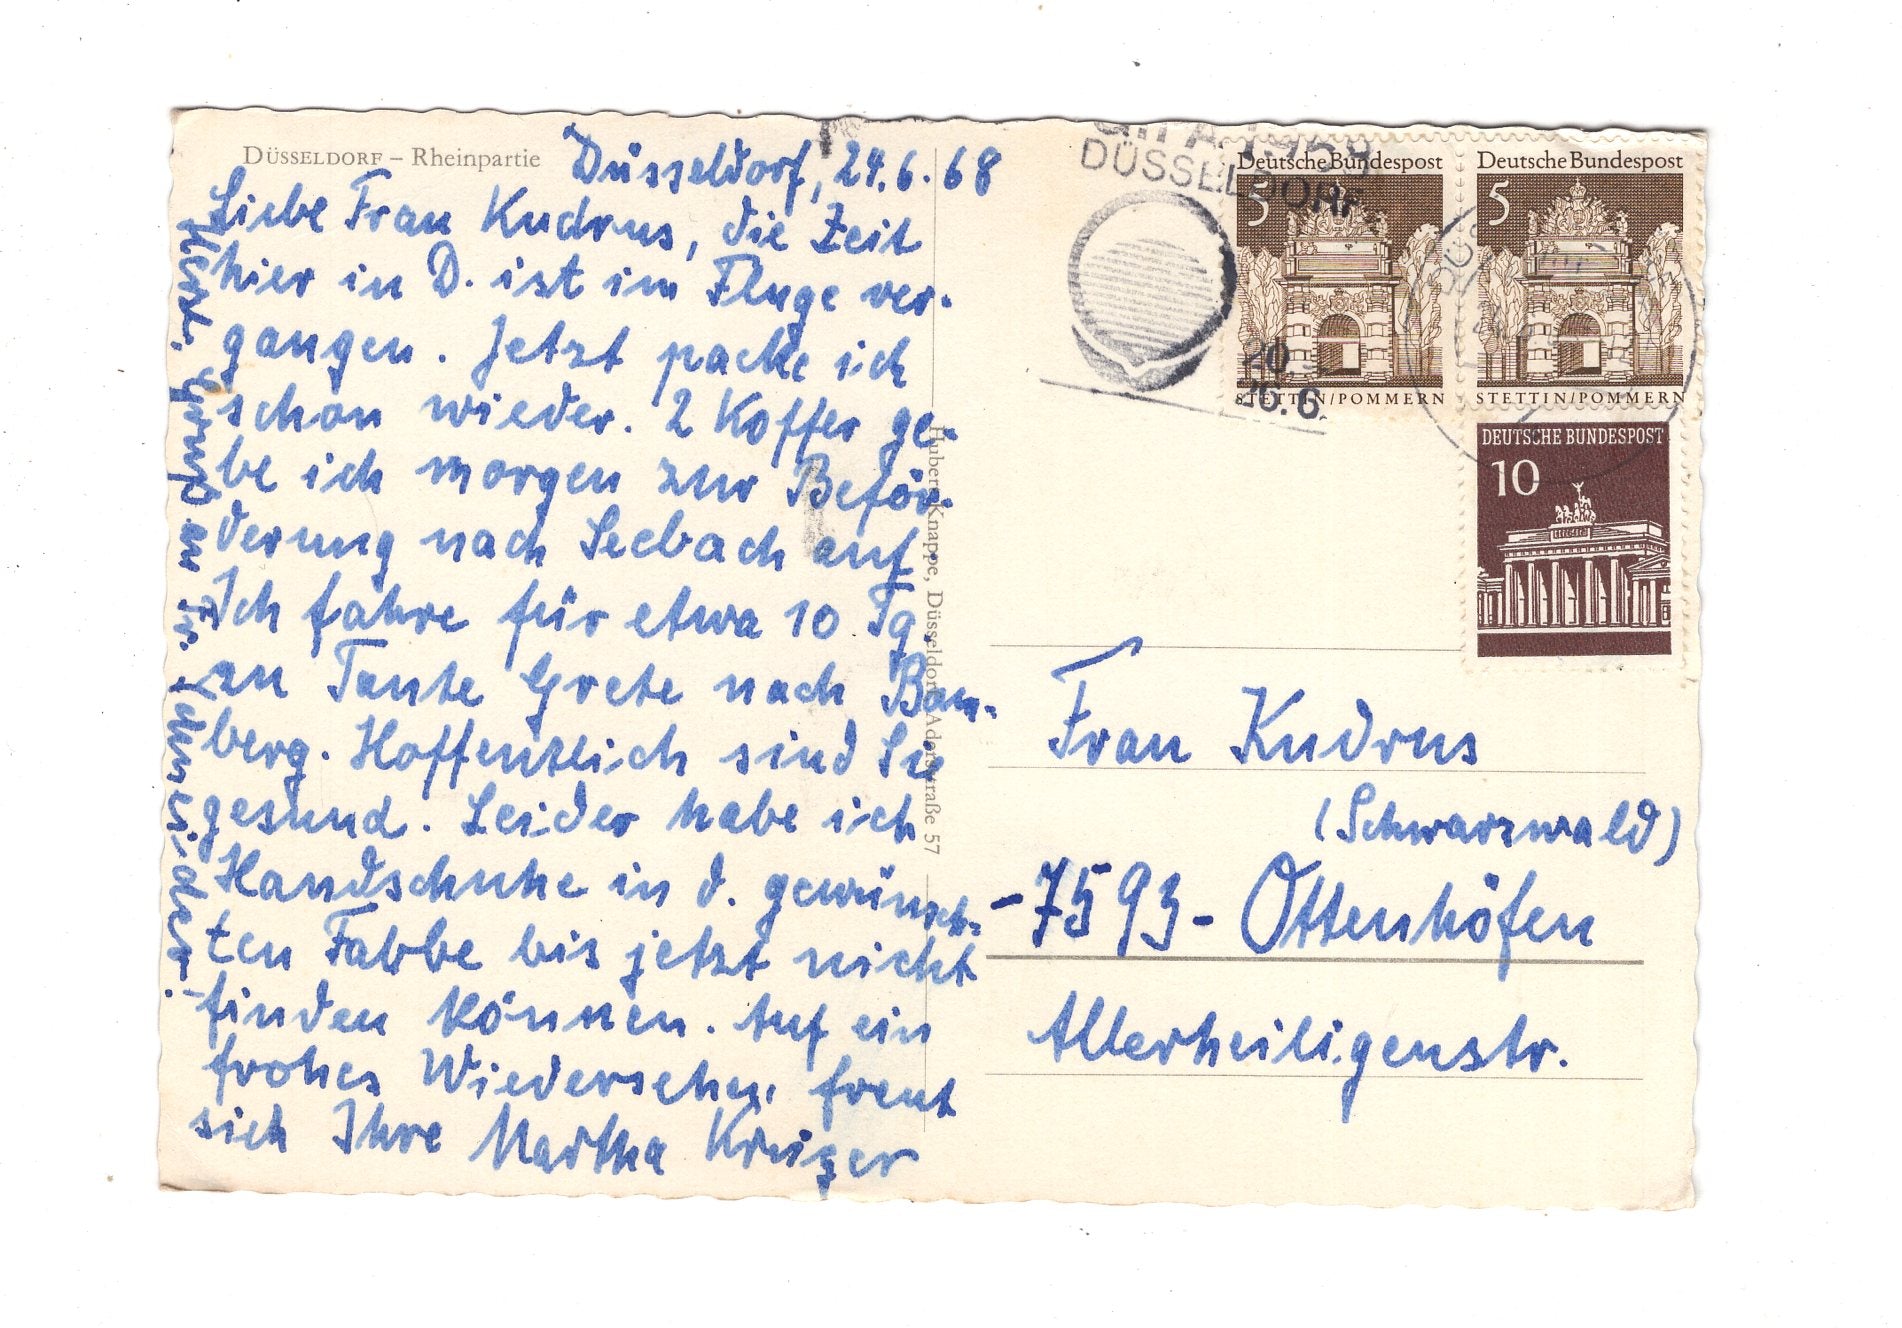 DÜSSELDORF – Rheinpartie
Düsseldorf, 24.6.68
Liebe Frau Kudrus, die Zeit
hier in D. ist im Fluge ver-
gangen. Jetzt packe ich
schon wieder. 2 Koffer ge-
be ich morgen zur Beför-
derung nach Seebach auf.
Ich fahre für etwa 10 Tg.
zu Tante Grete nach Bam-
berg. Hoffentlich sind Sie
gesund. Leider habe ich
Handschuhe in d. gewünsch-
ten Fabbe bis jetzt nicht
finden können. Auf ein
frohes Wiedersehen freut
sich Ihre Martha
Herzl. Gruß an Fr.
Hubert Knappe, Düsseldorf, Adersstraße 57
1968
DÜSSELDORF
20.
26.6.
Deutsche Bundespost
5
STETTIN/POMMERN
Deutsche Bundespost
5
STETTIN/POMMERN
DEUTSCHE BUNDESPOST
10
Frau Kudrus
(Schwarzwald)
-7593- Ottenhöfen
Allerheiligenstr.